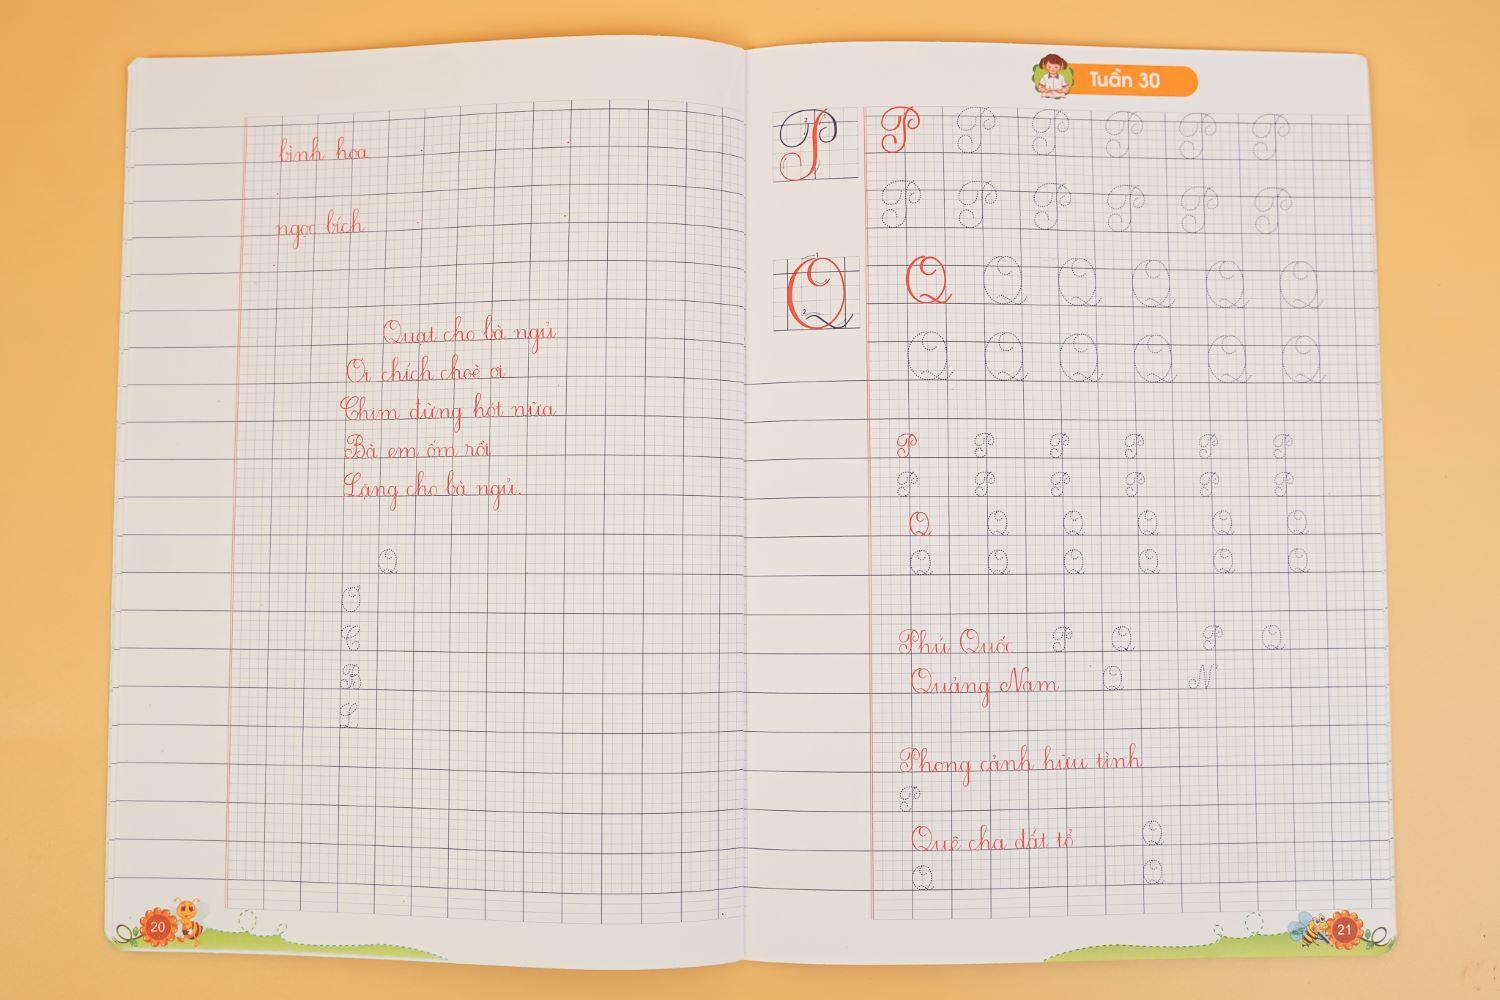 bình hoa
ngọc bích
Quạt cho bà ngủ
Ơi chích choè ơi
Chim đừng hót nữa
Bà em ốm rồi
Lặng cho bà ngủ.
Q
Ơ
C
B
L
20
Tuần 30
P P P P P P P
P P P P P P
Q Q Q Q Q Q Q
Q Q Q Q Q Q
P P P P P P
P P P P P P
Q Q Q Q Q Q
Q Q Q Q Q Q
Phú Quốc P Q P Q
Quảng Nam Q N
Phong cảnh hữu tình
P
Quê cha đất tổ Q
Q Q
21